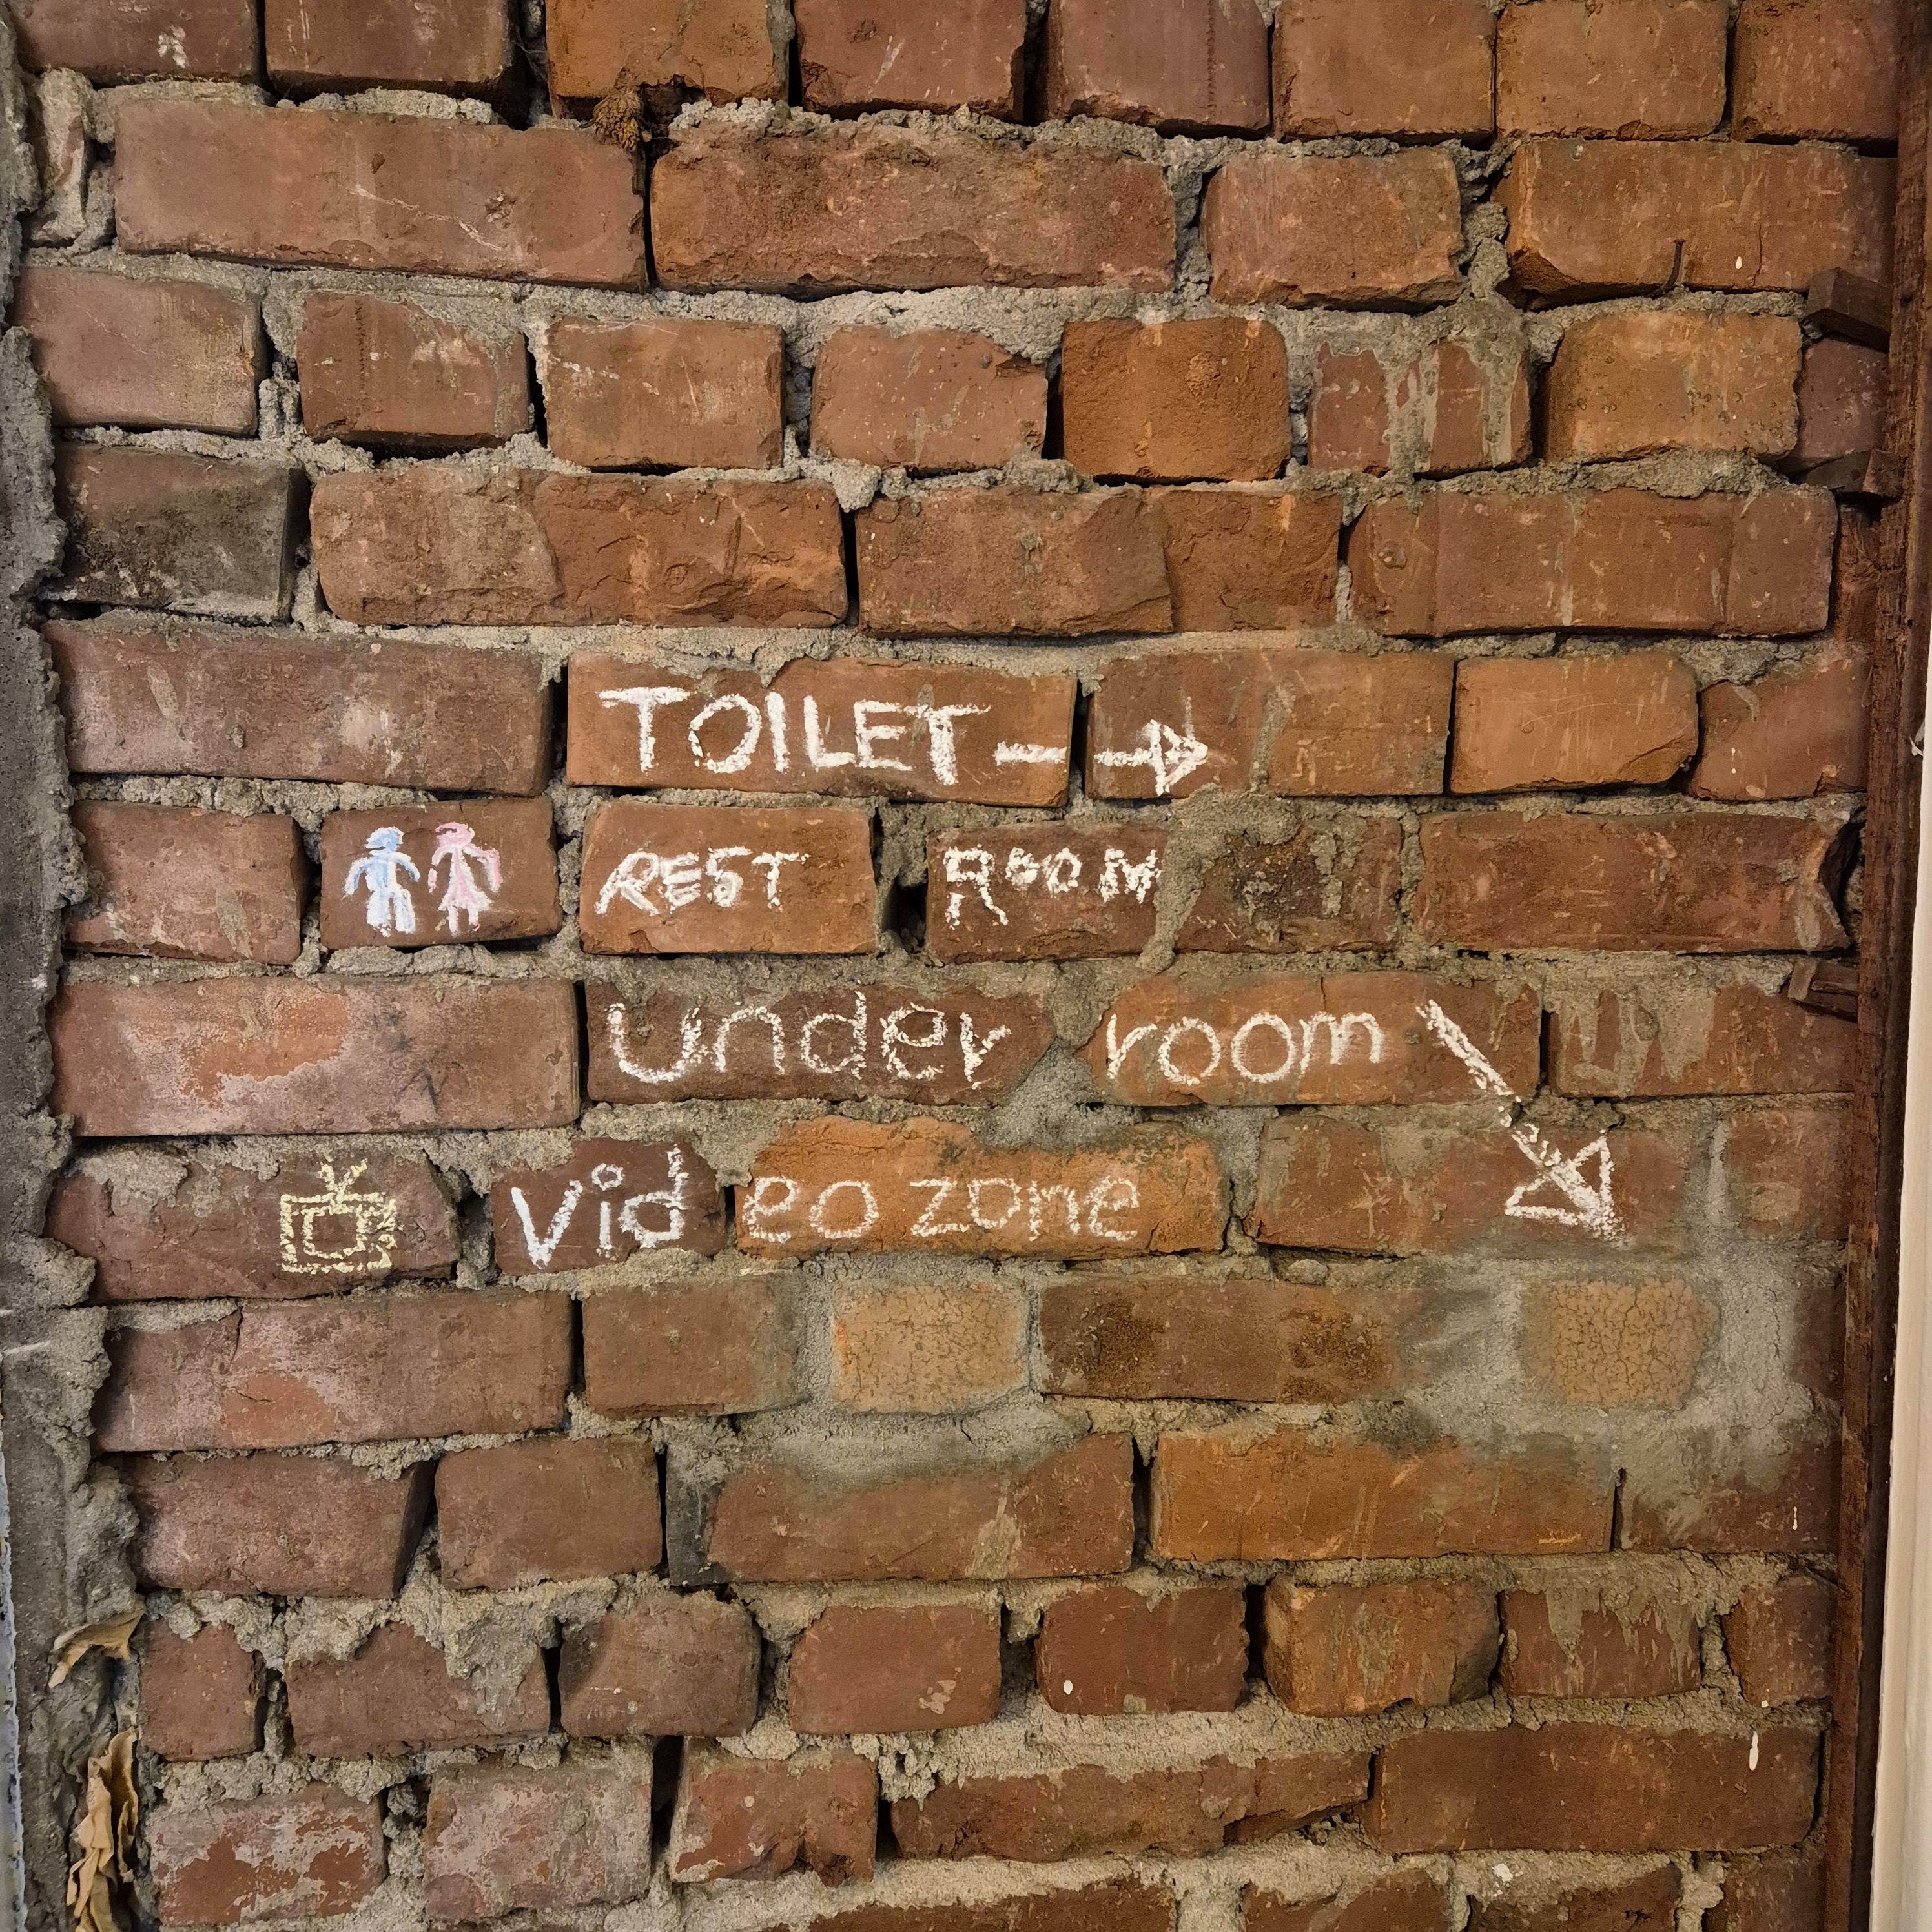 TOILET →
REST ROOM
under room
Video zone